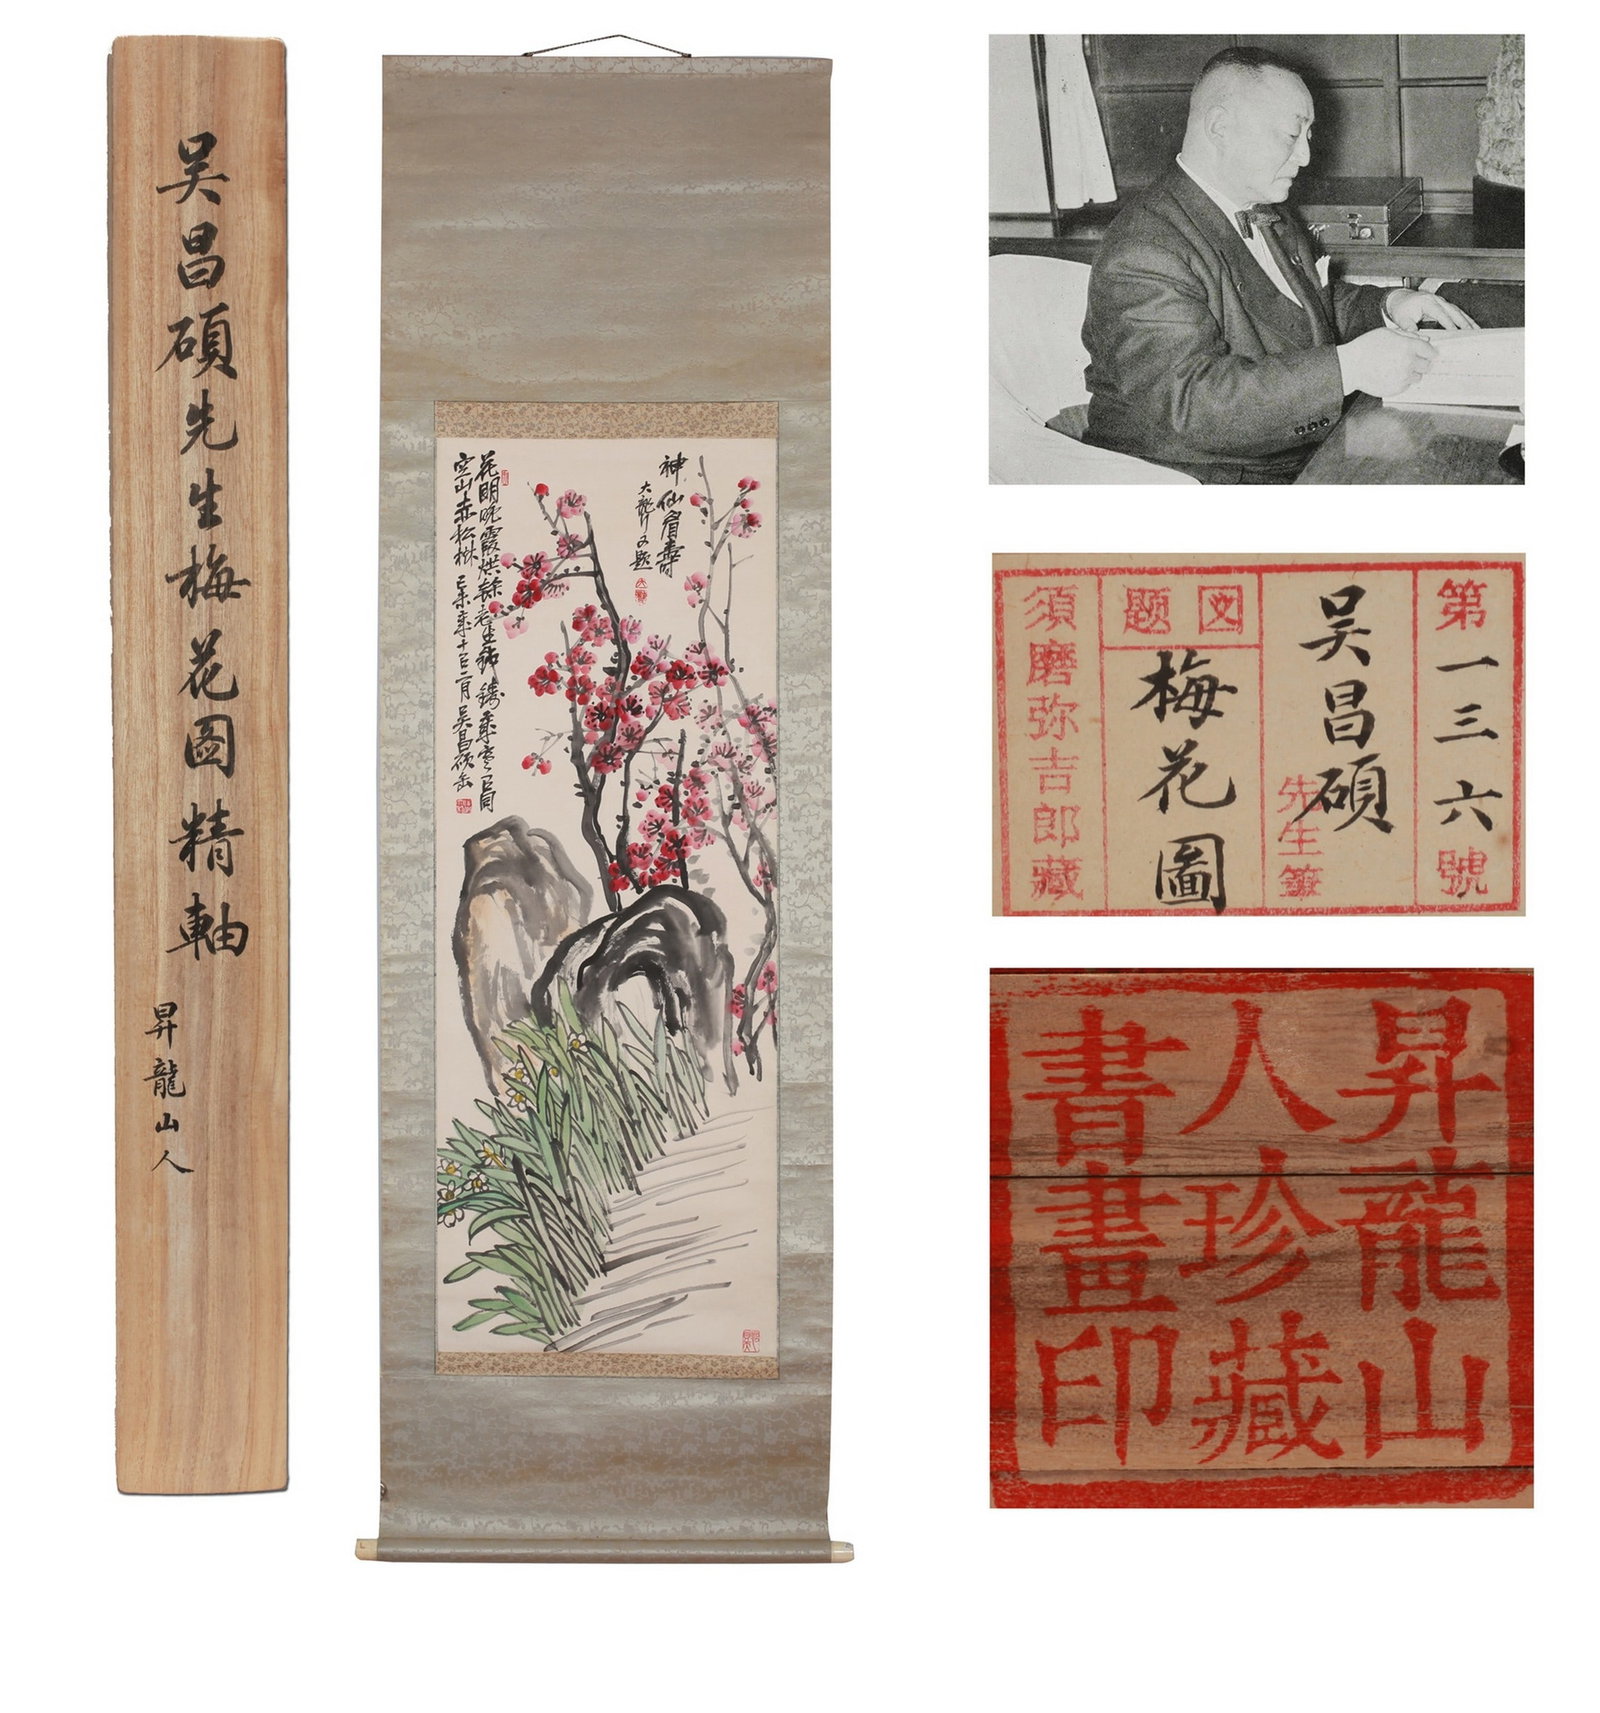 吴昌碩先生梅花图精軸
昇龍山人
神仙眉壽
花明晚霞烘
空山赤松
吴昌碩
第一三六號
吴昌碩
先生筆
図題
梅花圖
須磨弥吉郎藏
昇龍山
人珍藏
書畫印